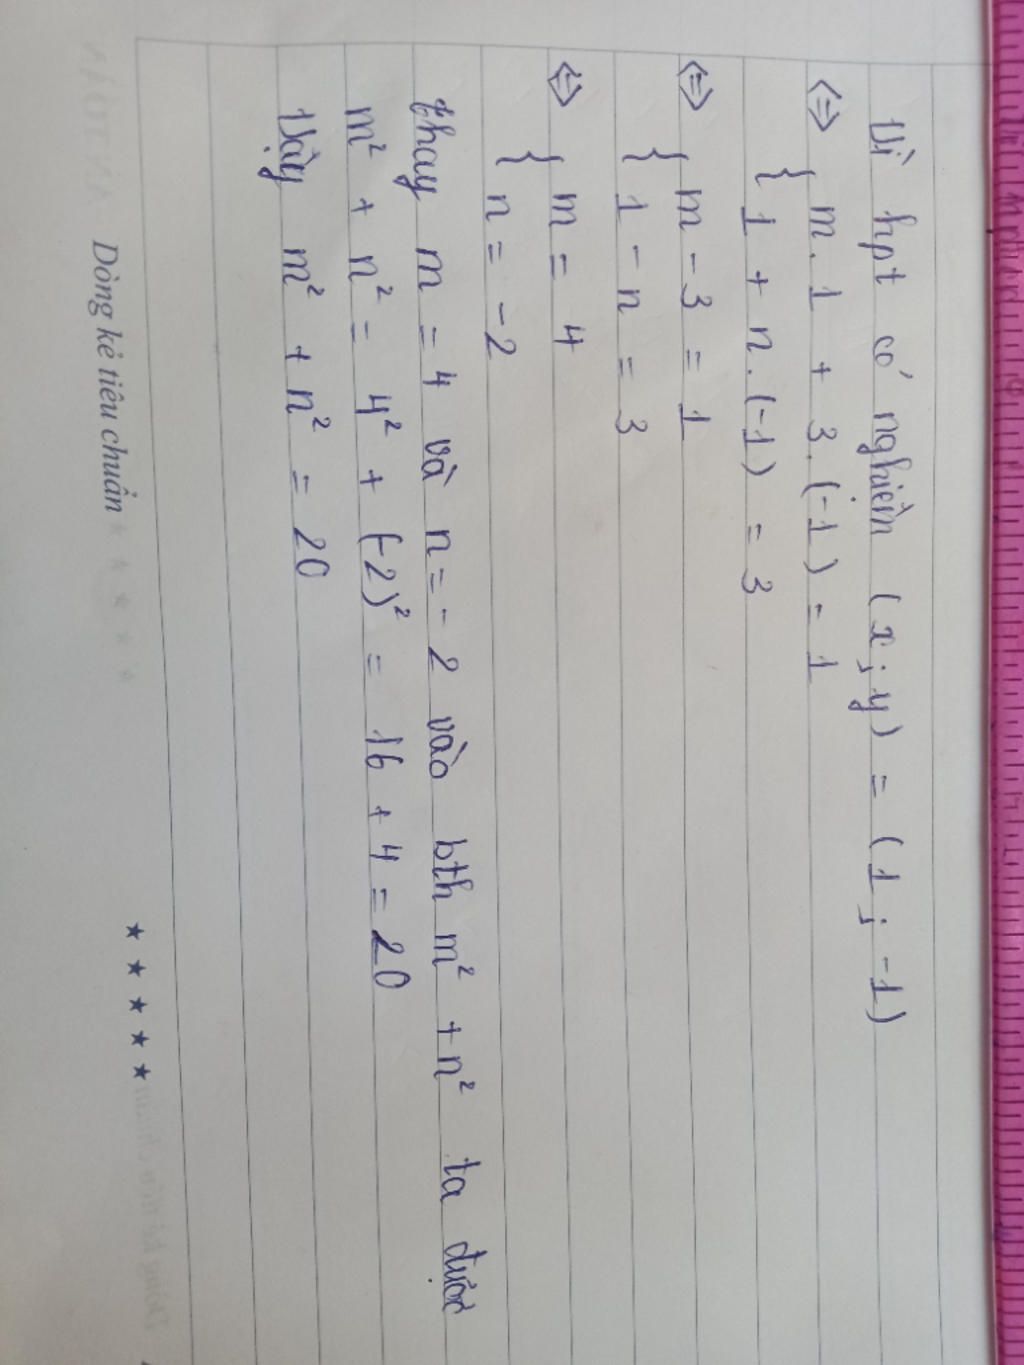 Vì hpt có nghiệm (x; y) = (1; -1)
<=> { m. 1 + 3. (-1) = 1
1 + n. (-1) = 3
<=> { m - 3 = 1
1 - n = 3
<=> { m = 4
n = -2
thay m = 4 và n = -2 vào bth m² + n² ta được
m² + n² = 4² + (-2)² = 16 + 4 = 20
Vậy m² + n² = 20
Dòng kẻ tiêu chuẩn ★★★★★